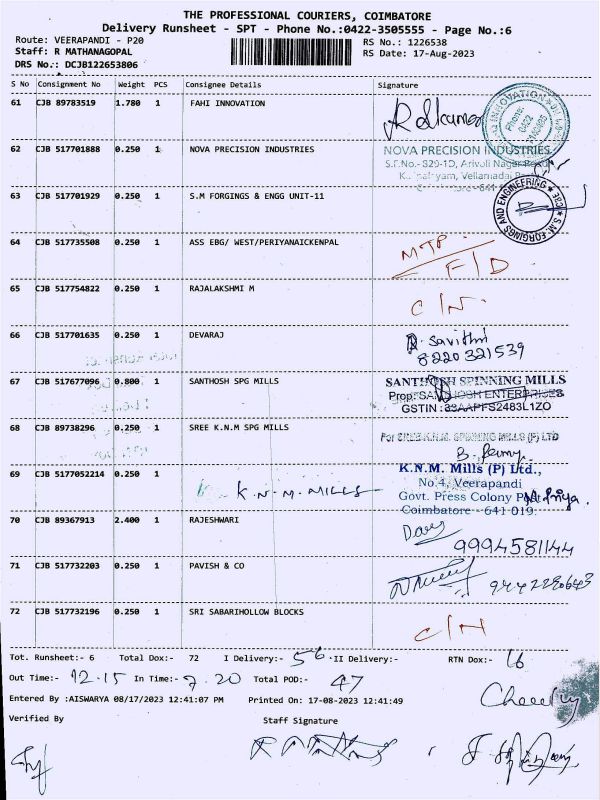 THE PROFESSIONAL COURIERS, COIMBATORE
Delivery Runsheet - SPT - Phone No.:0422-3505555 - Page No.:6
Route: VEERAPANDI - P20 RS No.: 1226538
Staff: R MATHANAGOPAL RS Date: 17-Aug-2023
DRS No.: DCJB122653806
S No Consignment No Weight PCS Consignee Details Signature
61 CJB 89783519 1.780 1 FAHI INNOVATION
62 CJB 517701888 0.250 1 NOVA PRECISION INDUSTRIES NOVA PRECISION INDUSTRIES
S.F.No.- 829-1D, Arivoli Nagar
63 CJB 517701929 0.250 1 S.M FORGINGS & ENGG UNIT-11 S.M. FORGINGS AND ENGINEERING
64 CJB 517735508 0.250 1 ASS EBG/ WEST/PERIYANAICKENPAL MTP F/D
65 CJB 517754822 0.250 1 RAJALAKSHMI M C/N
66 CJB 517701635 0.250 1 DEVARAJ Savithri
8220321539
67 CJB 517677096 0.800 1 SANTHOSH SPG MILLS SANTHOSH SPINNING MILLS
Prop: SANTHOSH ENTERPRISES
GSTIN : 33AAPFS2483L1ZO
68 CJB 89738296 0.250 1 SREE K.N.M SPG MILLS For SREE K.N.M. SPINNING MILLS (P) LTD
69 CJB 5177052214 0.250 1 K.N.M. MILLS K.N.M. Mills (P) Ltd.,
No.4, Veerapandi
Govt. Press Colony Post M. Priya.
Coimbatore - 641 019.
70 CJB 89367913 2.400 1 RAJESHWARI
9994581144
71 CJB 517732203 0.250 1 PAVISH & CO
72 CJB 517732196 0.250 1 SRI SABARIHOLLOW BLOCKS C/N
Tot. Runsheet:- 6 Total Dox:- 72 I Delivery:- 56 II Delivery:- RTN Dox:- 16
Out Time:- 12.15 In Time:- 7.20 Total POD:- 47
Entered By :AISWARYA 08/17/2023 12:41:07 PM Printed On: 17-08-2023 12:41:49
Verified By Staff Signature